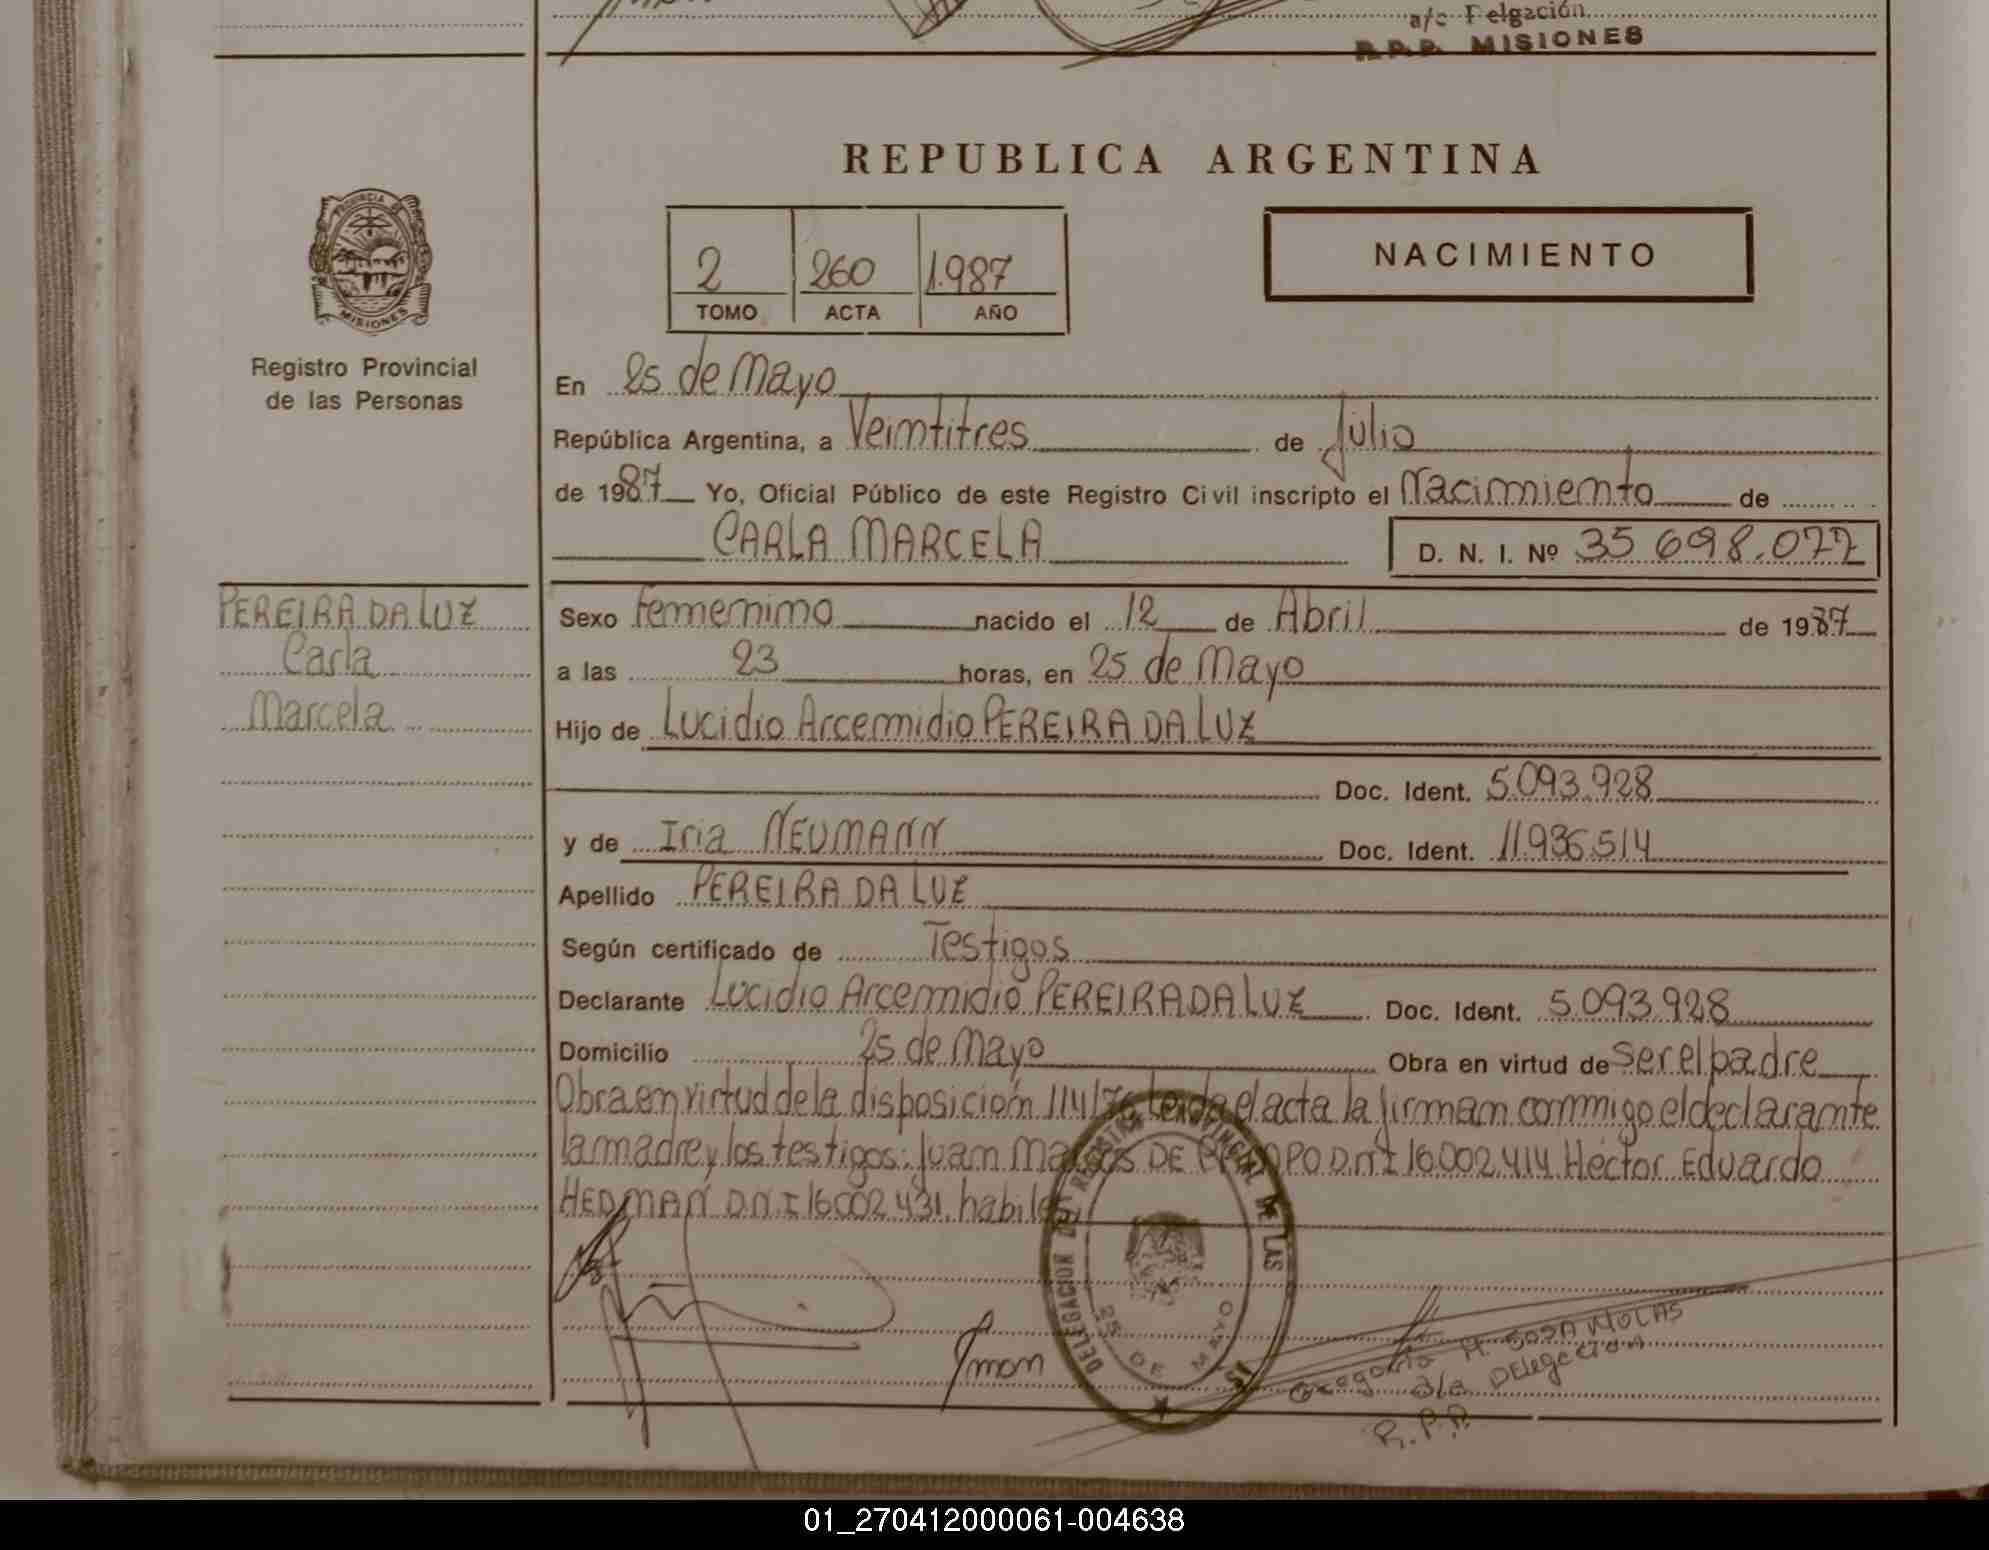 a/c Delgación
R.P.P. MISIONES
REPUBLICA ARGENTINA
PROVINCIA DE
MISIONES
Registro Provincial
de las Personas
2 260 1.987
TOMO ACTA AÑO
NACIMIENTO
En 25 de Mayo
República Argentina, a Veintitres de Julio
de 1987 Yo, Oficial Público de este Registro Civil inscripto el Nacimiento de
CARLA MARCELA D. N. I. Nº 35.698.077
PEREIRA DA LUZ
Carla
Marcela
Sexo femenino nacido el 12 de Abril de 1987
a las 23 horas, en 25 de Mayo
Hijo de Lucidio Arcenidio PEREIRA DA LUZ
Doc. Ident. 5.093.928
y de Iria NEUMANN Doc. Ident. 11.936.514
Apellido PEREIRA DA LUZ
Según certificado de Testigos
Declarante Lucidio Arcenidio PEREIRA DA LUZ Doc. Ident. 5.093.928
Domicilio 25 de Mayo Obra en virtud de ser el padre
Obra en virtud de la disposición 114/76 Leida el acta la firman conmigo el declarante
la madre y los testigos: Juan Marcos DE D.N.I 16.002.414 Héctor Eduardo
HEDMAN D.N.I 16.002.431. habiles
DELEGACION DEL REGISTRO PROVINCIAL DE LAS
25 DE MAYO
Gregorio H. SOSA MOLAS
a/c DElegación
R.P.P
01_270412000061-004638